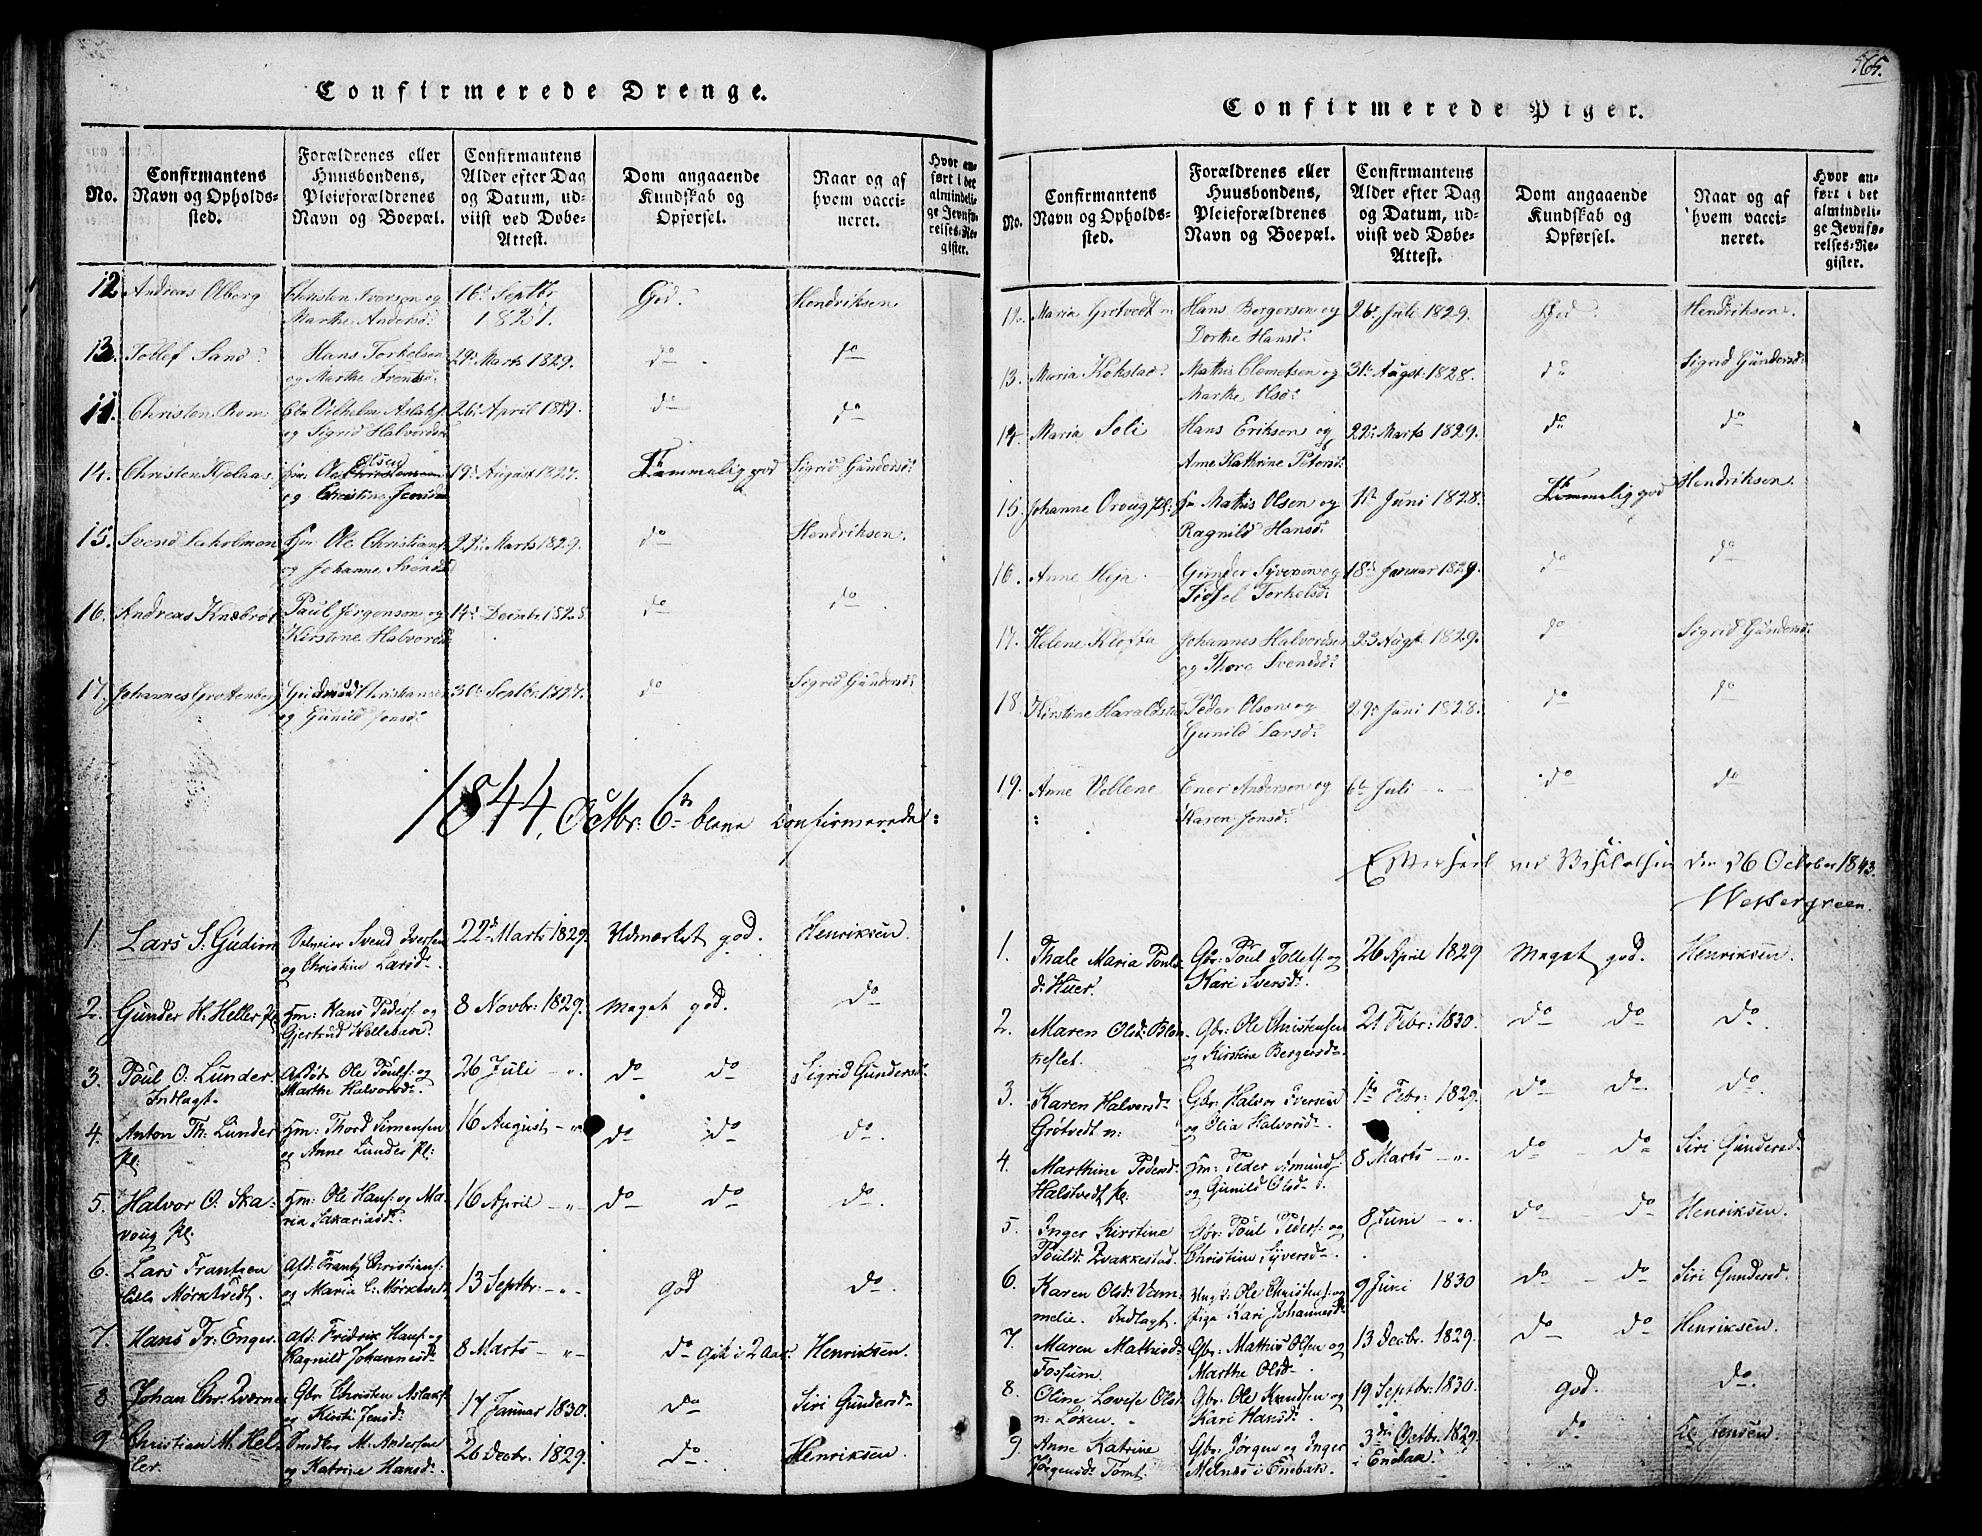 565.
Confirmerede Drenge.
No.
Confirmantens Navn og Opholdssted.
Forældrenes eller Huusbondens, Pleieforældrenes Navn og Boepæl.
Confirmantens Alder efter Dag og Datum, udviist ved Døbe-Attest.
Dom angaaende Kundskab og Opførsel.
Naar og af hvem vaccineret.
Hvor anført i det almindelige Jevnførelses-Register.
12 Andreas Olberg Christen Iversen og 16d Septbr God. Hendriksen
Marthe Andersd: 1827.
13. Tollef Sand. Hans Torkelsen 29d Marts 1829. do do
og Marthe
Christen Rom Vilhelm Aslaks: 26d April 1829. do do
og Sigrid Halvorsd:
14. Christen Ole Olsen 19d August 1827. Temmelig god Sigrid Gundersd:
og Christine Jensd:
15. Svend Hm: Ole Christians: 22d Marts 1829. do Hendriksen.
og Johanne Svensd:
16. Andreas Knæbrøt Paul Jørgensen og 14d Decmbr. 1828. do do
Kirstine Halvorsd:
17. Johannes Grottenberg Christiansen 30te Septbr. 1827. do Sigrid Gundersd:
og Gunild Jonsd:
1844, Octbr: 6te bleve Confirmerede:
1. Lars S. Gudim Svend Iversen 22d Marts 1829. Udmærket god. Henriksen.
og Christine Larsd:
2. Gunder H. Heller pl. Hm: Hans Peders: og 8 Novbr: 1829. Meget god. do
Gjertrud
3. Poul O: Lunder Afdøde Ole Pouls: og 26 Juli – " do do Sigrid Gundersd:
Indlagt. Marthe Halvorsd:
4. Anton Th: Lunder Hm: Thord Simensen 16 August – " do do do.
pl: og Anne Lunder pl:
5. Halvor O. Ska- Hm: Ole Hans: og Ma- 16 April – " do do do.
voug pl. ria Sakariasd:
6. Lars Frantzen Afd: Frantz Christians: 13 Septbr. – " god do.
Mørktvedt. og Maria C: Mørktvedt
7. Hans Fr: Enger. Afd: Fridrik Hans: og 8 Marts – " do gik i 2 Aar. Henriksen.
Ragnild Johannesd:
8. Johan Chr. Gbr: Christen Aslaks: 17 Januar 1830. do Siri Gundersd:
og Kirsti Jensd:
9. Christian M. Hel- M: Andersen 26 Decbr. 1829. do. Henriksen.
ler. og Katrine Hansd:
Confirmerede Piger.
No.
Confirmantens Navn og Opholdssted.
Forældrenes eller Huusbondens, Pleieforældrenes Navn og Boepæl.
Confirmantens Alder efter Dag og Datum, udviist ved Døbe-Attest.
Dom angaaende Kundskab og Opførsel.
Naar og af hvem vaccineret.
Hvor anført i det almindelige Jevnførelses-Register.
12. Maria Grotvedt n: Hans Bergersen og 26d Juli 1829. God. Hendriksen.
Dorthe Hansd:
13. Maria Kokstad. Mathis Clemetsen og 31te August 1828. do Sigrid Gundersd:
Marthe Olsd:
14. Maria Soli Hans Eriksen og 22d Marts 1829. do do
Anne Kathrine Petersd:
15. Johanne Orvug pl: Mathis Olsen og 1ste Juni 1828. Temmelig god Hendriksen.
Ragnild Hansd:
16. Anne Heja Gunder Syversen og 18d Januar 1829. do do
Sidsel Torkelsd:
17. Helene Klofta Johannes Halvordsen 23 Augst. 1829. do Sigrid Gundersd:
og Thore Svensd:
18. Kirstine Haraldstad Peder Olsen og 29d Juni 1828. do do
Gunild Larsd:
19. Anne Vellene Ener Andersen og 6te Juli " – do do
Karen Jonsd:
Efterseet ved Visitatsen den 26 October 1843.
Wessergreen.
1. Thale Maria Pouls- Gbr: Poul Tollefs: og 26 April 1829 Meget god. Henriksen.
d: Huer. Kari Iversd:
2. Maren Olsd: Blon- Gbr: Ole Christensen 21 Febr: 1830. do do do.
keflet. og Kirstine Bergersd:
3. Karen Halvorsd: Gbr: Halvor Iversen 1te Febr: 1829. do do. do.
Grotvedt n: og Olia Halvorsd:
4. Marthine Pedersd: Hm: Peder Amunds: 8 Marts – " do – do Siri Gundersd:
Halstvedt pl. og Gunild Olsd:
5. Inger Kirstine Gbr: Poul Peders: og 8 Juni – " do – do Henriksen.
Poulsd: Zvakkestad. Christine Syversd:
6. Karen Olsd: Vam- Ungk: Ole Christens: og 9 Juni 1830 do – do Siri Gundersd:
melie. Indlagt. Pige Kari Johannesd:
7. Maren Mathisd: Gbr: Mathis Olsen og 13 Decbr. 1829. do do Henriksen.
Fossum. Marthe Olsd:
8. Oline Lovise Olsd: Gbr: Ole Knudsen og 19 Septbr. 1830. god. do.
n: Løken. Kari Hansd:
9. Anne Katrine Gbr: Jørgen og Inger 3die Octbr: 1829. do Jensen.
Jørgensd: Tomt. Melnæs i Enebak. i Enebak.